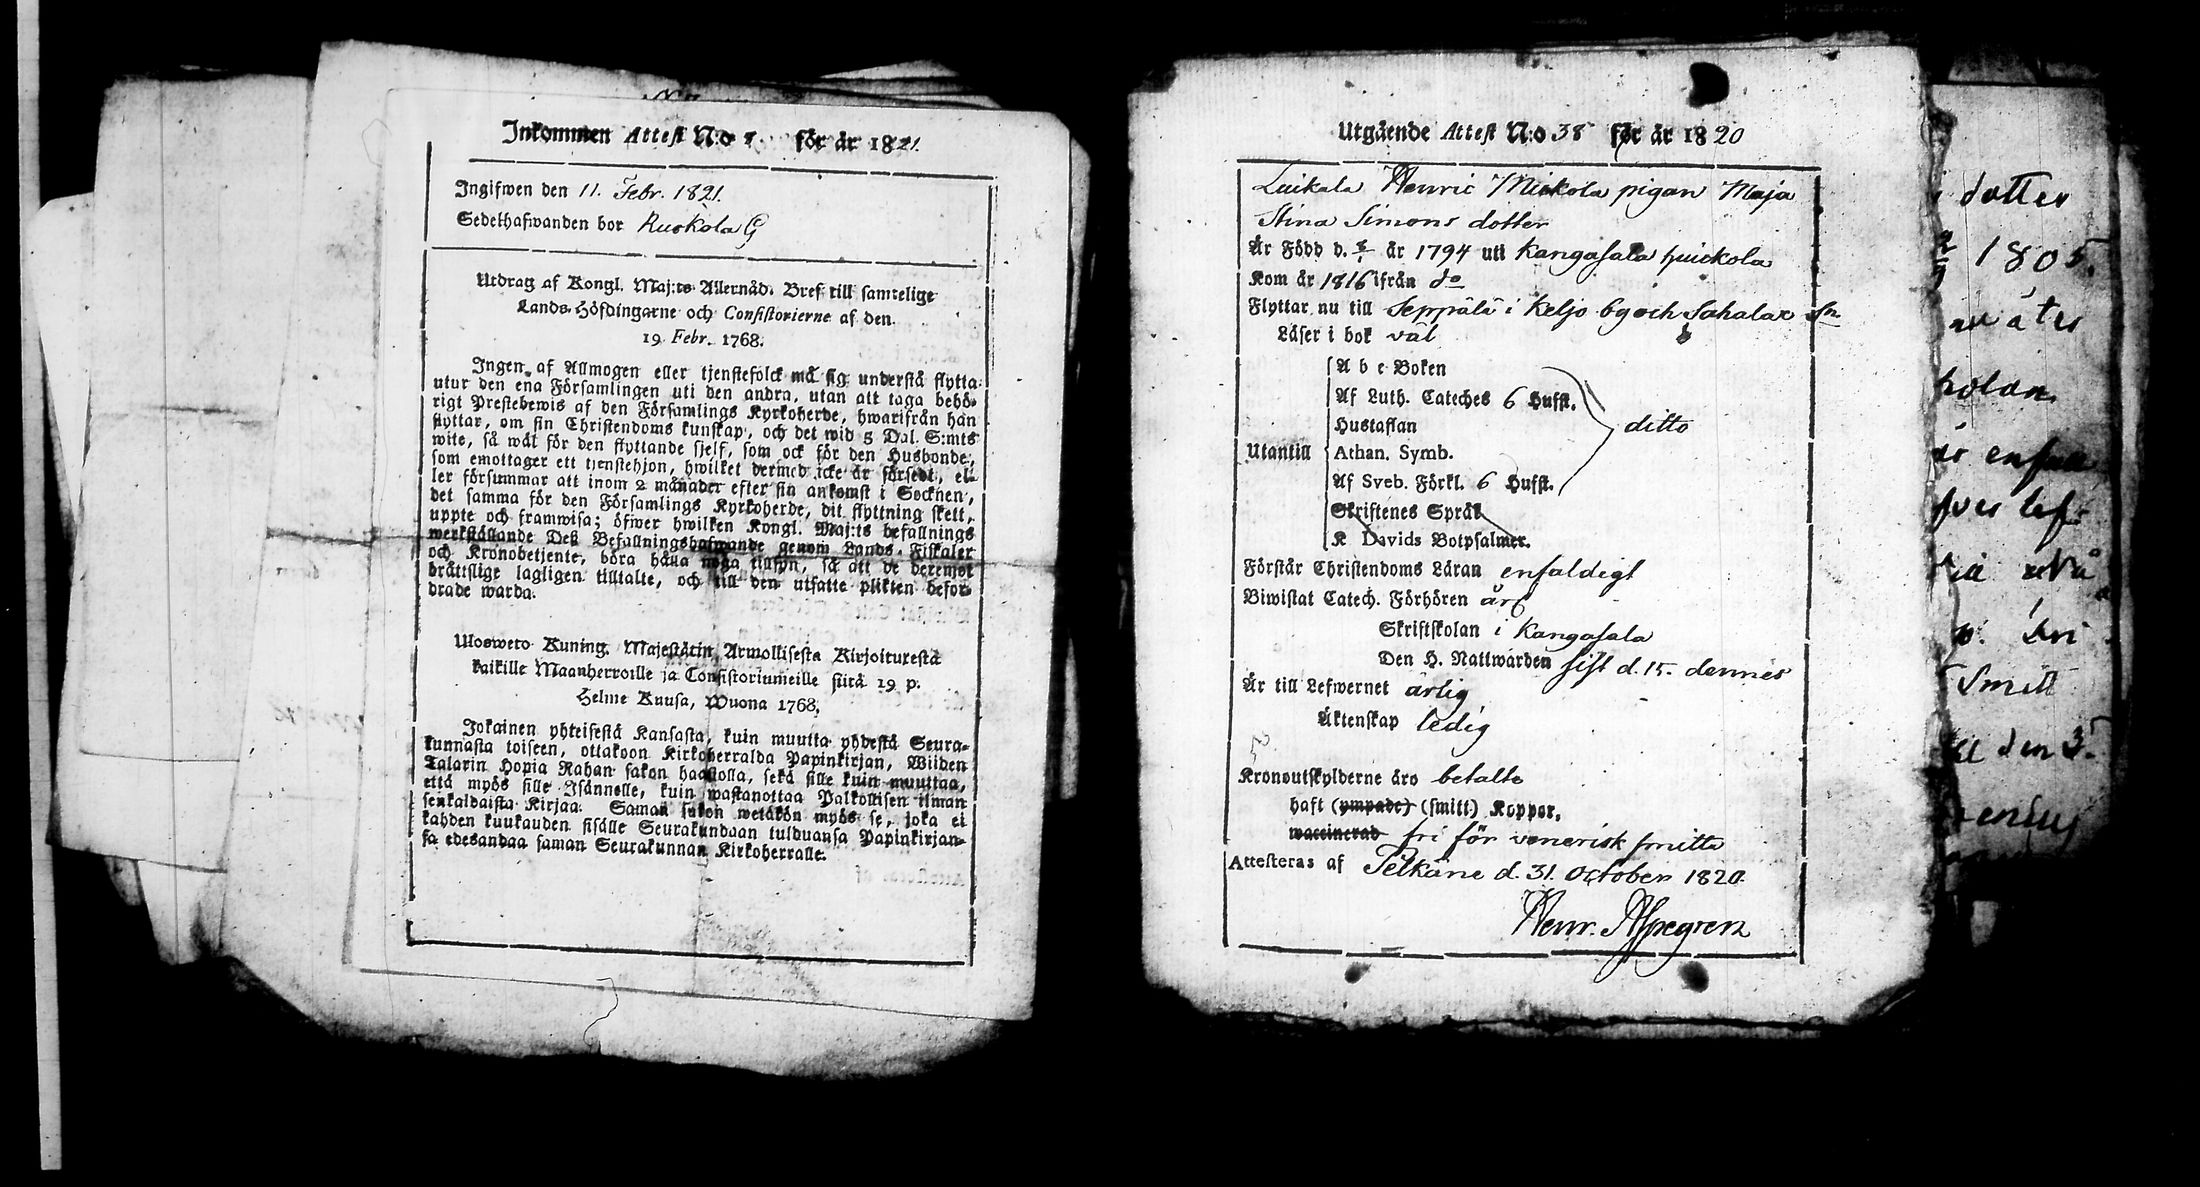 Inkommen Attest N:o för år 1821.
Ingifwen den 11. Febr. 1821.
Sedelhafwanden bor Ruokola G
Utdrag af Kongl. Maj:ts Allernåd. Bref till samtelige
Lands-Höfdingarne och Consistorierne af den
19 Febr. 1768.
Ingen af Allmogen eller tjenstefolck må sig understå flytta
utur den ena Församlingen uti den andra, utan att taga behö-
rigt Prestebewis af den Församlings Kyrkoherde, hwarifrån han
flyttar, om sin Christendoms kunskap, och det wid 5 Dal. S:mts
wite, så wäl för den flyttande sjelf, som ock för den Husbonde,
som emottager ett tjenstehjon, hwilket dermed icke är försedt, el-
ler försummar att inom 2 månader efter sin ankomst i Socknen,
det samma för den Församlings Kyrkoherde, dit flyttning skett,
uppte och framwisa; öfwer hwilken Kongl. Maj:ts befallnings
werkställande Deß Befallningshafwande genom Lands-Fiskaler
och Kronobetjente, böra hålla noga tillsyn, så att de deremot
bråttslige lagligen tilltalte, och till den utsatte plikten befor-
drade warda.
Ulosweto Kuning. Majestätin Armollisesta Kirjoituresta
kaikille Maanherroille ja Consistoriumeille siitä 19 p.
Helme Kuusa, Wuona 1768,
Jokainen yhteisestä Kansasta, kuin muutta yhdestä Seura-
kunnasta toiseen, ottakoon Kirkoherralda Papinkirjan, Wiiden
Talarin Hopia Rahan sakon haastolla, sekä sille kuin muuttaa,
että myös sille Isännelle, kuin wastanottaa Palkollisen ilman
senkaldaista Kirjaa. Saman sakon wetäkön myös se, joka ei
kahden kuukauden sisälle Seurakundaan tulduansa Papinkirjan-
sa edesandaa saman Seurakunnan Kirkoherralle.
Utgående Attest N:o 38 för år 1820
Luikala Henric Mickola pigan Maja
Stina Simons dotter
Är Född d. år 1794 uti Kangasala Huickola
Kom år 1816 ifrån do
Flyttar nu till Seppälä i Keljo by och Sahalax Sn
Läser i bok väl
A b c Boken
Af Luth. Cateches 6 Hufst.
Hustaflan ditto
Utantill Athan. Symb.
Af Sveb. Förkl. 6 Hufst.
Skriftenes Språk
K Davids Botpsalmer.
Förstår Christendoms Läran enfaldigt
Biwistat Catech. Förhören
Skriftskolan i Kangasala
Den H. Nattwarden sist d. 15. dennes
Är till Lefwernet ärlig
Äktenskap ledig
Kronoutskylderne äro betalte
haft (ympade) (smitt) Koppor.
waccinerad fri för venerisk smitta
Attesteras af Pelkäne d. 31. October 1820.
Henr. Aspegren
dotter
1805.
åter
enfald
den 3.